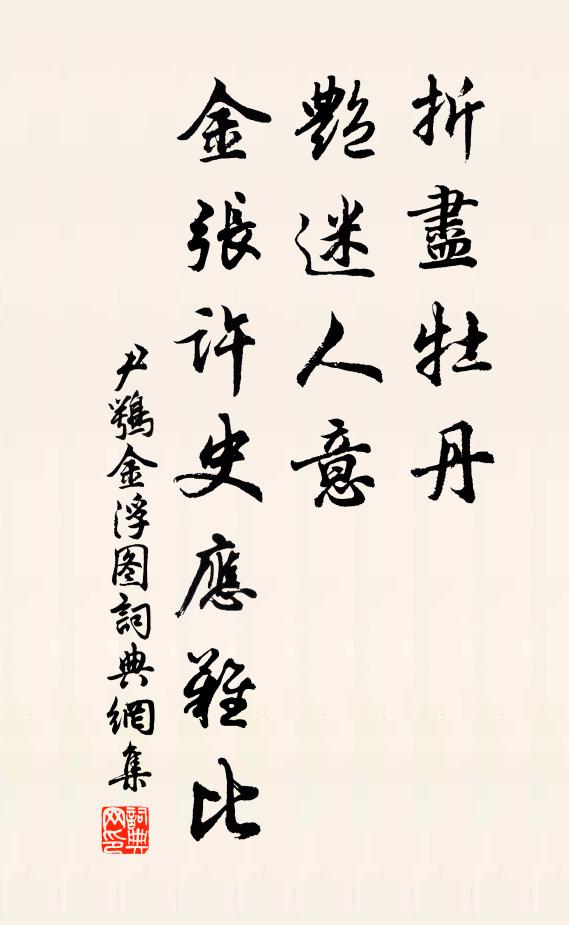 折盡牡丹
艷迷人意
金張許史應難比
尹鶚金浮图詞典網集
詞典
网印